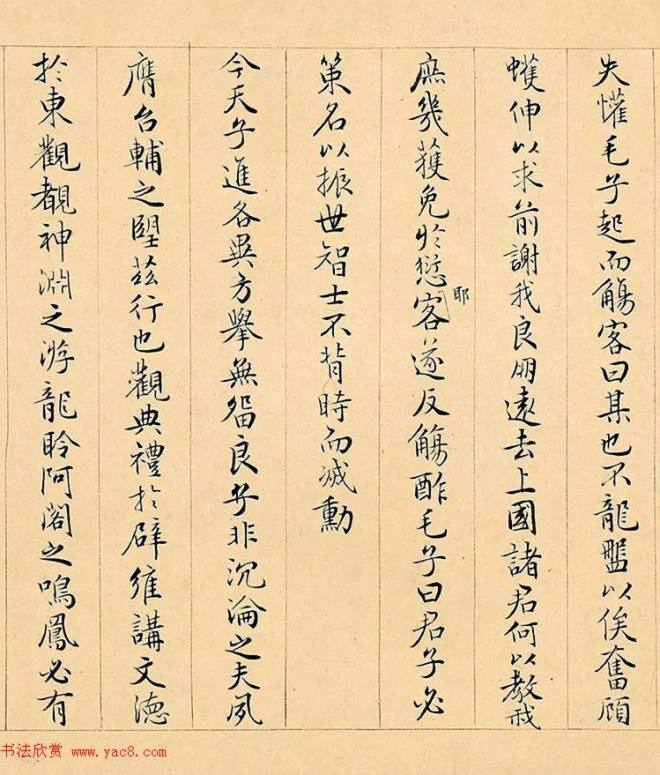 失懽毛子起而觴客曰某也不龍盤以俟奮顧
蠖伸以求前謝我良朋遠去上國諸君何以教我
庶幾獲免於愆耶客遂反觴酢毛子曰君子必
策名以振世智士不背時而滅勳
今天子進各異方舉無留良子非沉淪之夫夙
膺台輔之望茲行也觀典禮於辟雍講文德
於東觀覩神淵之游龍聆阿閣之鳴鳳必有
书法欣赏 www.yac8.com